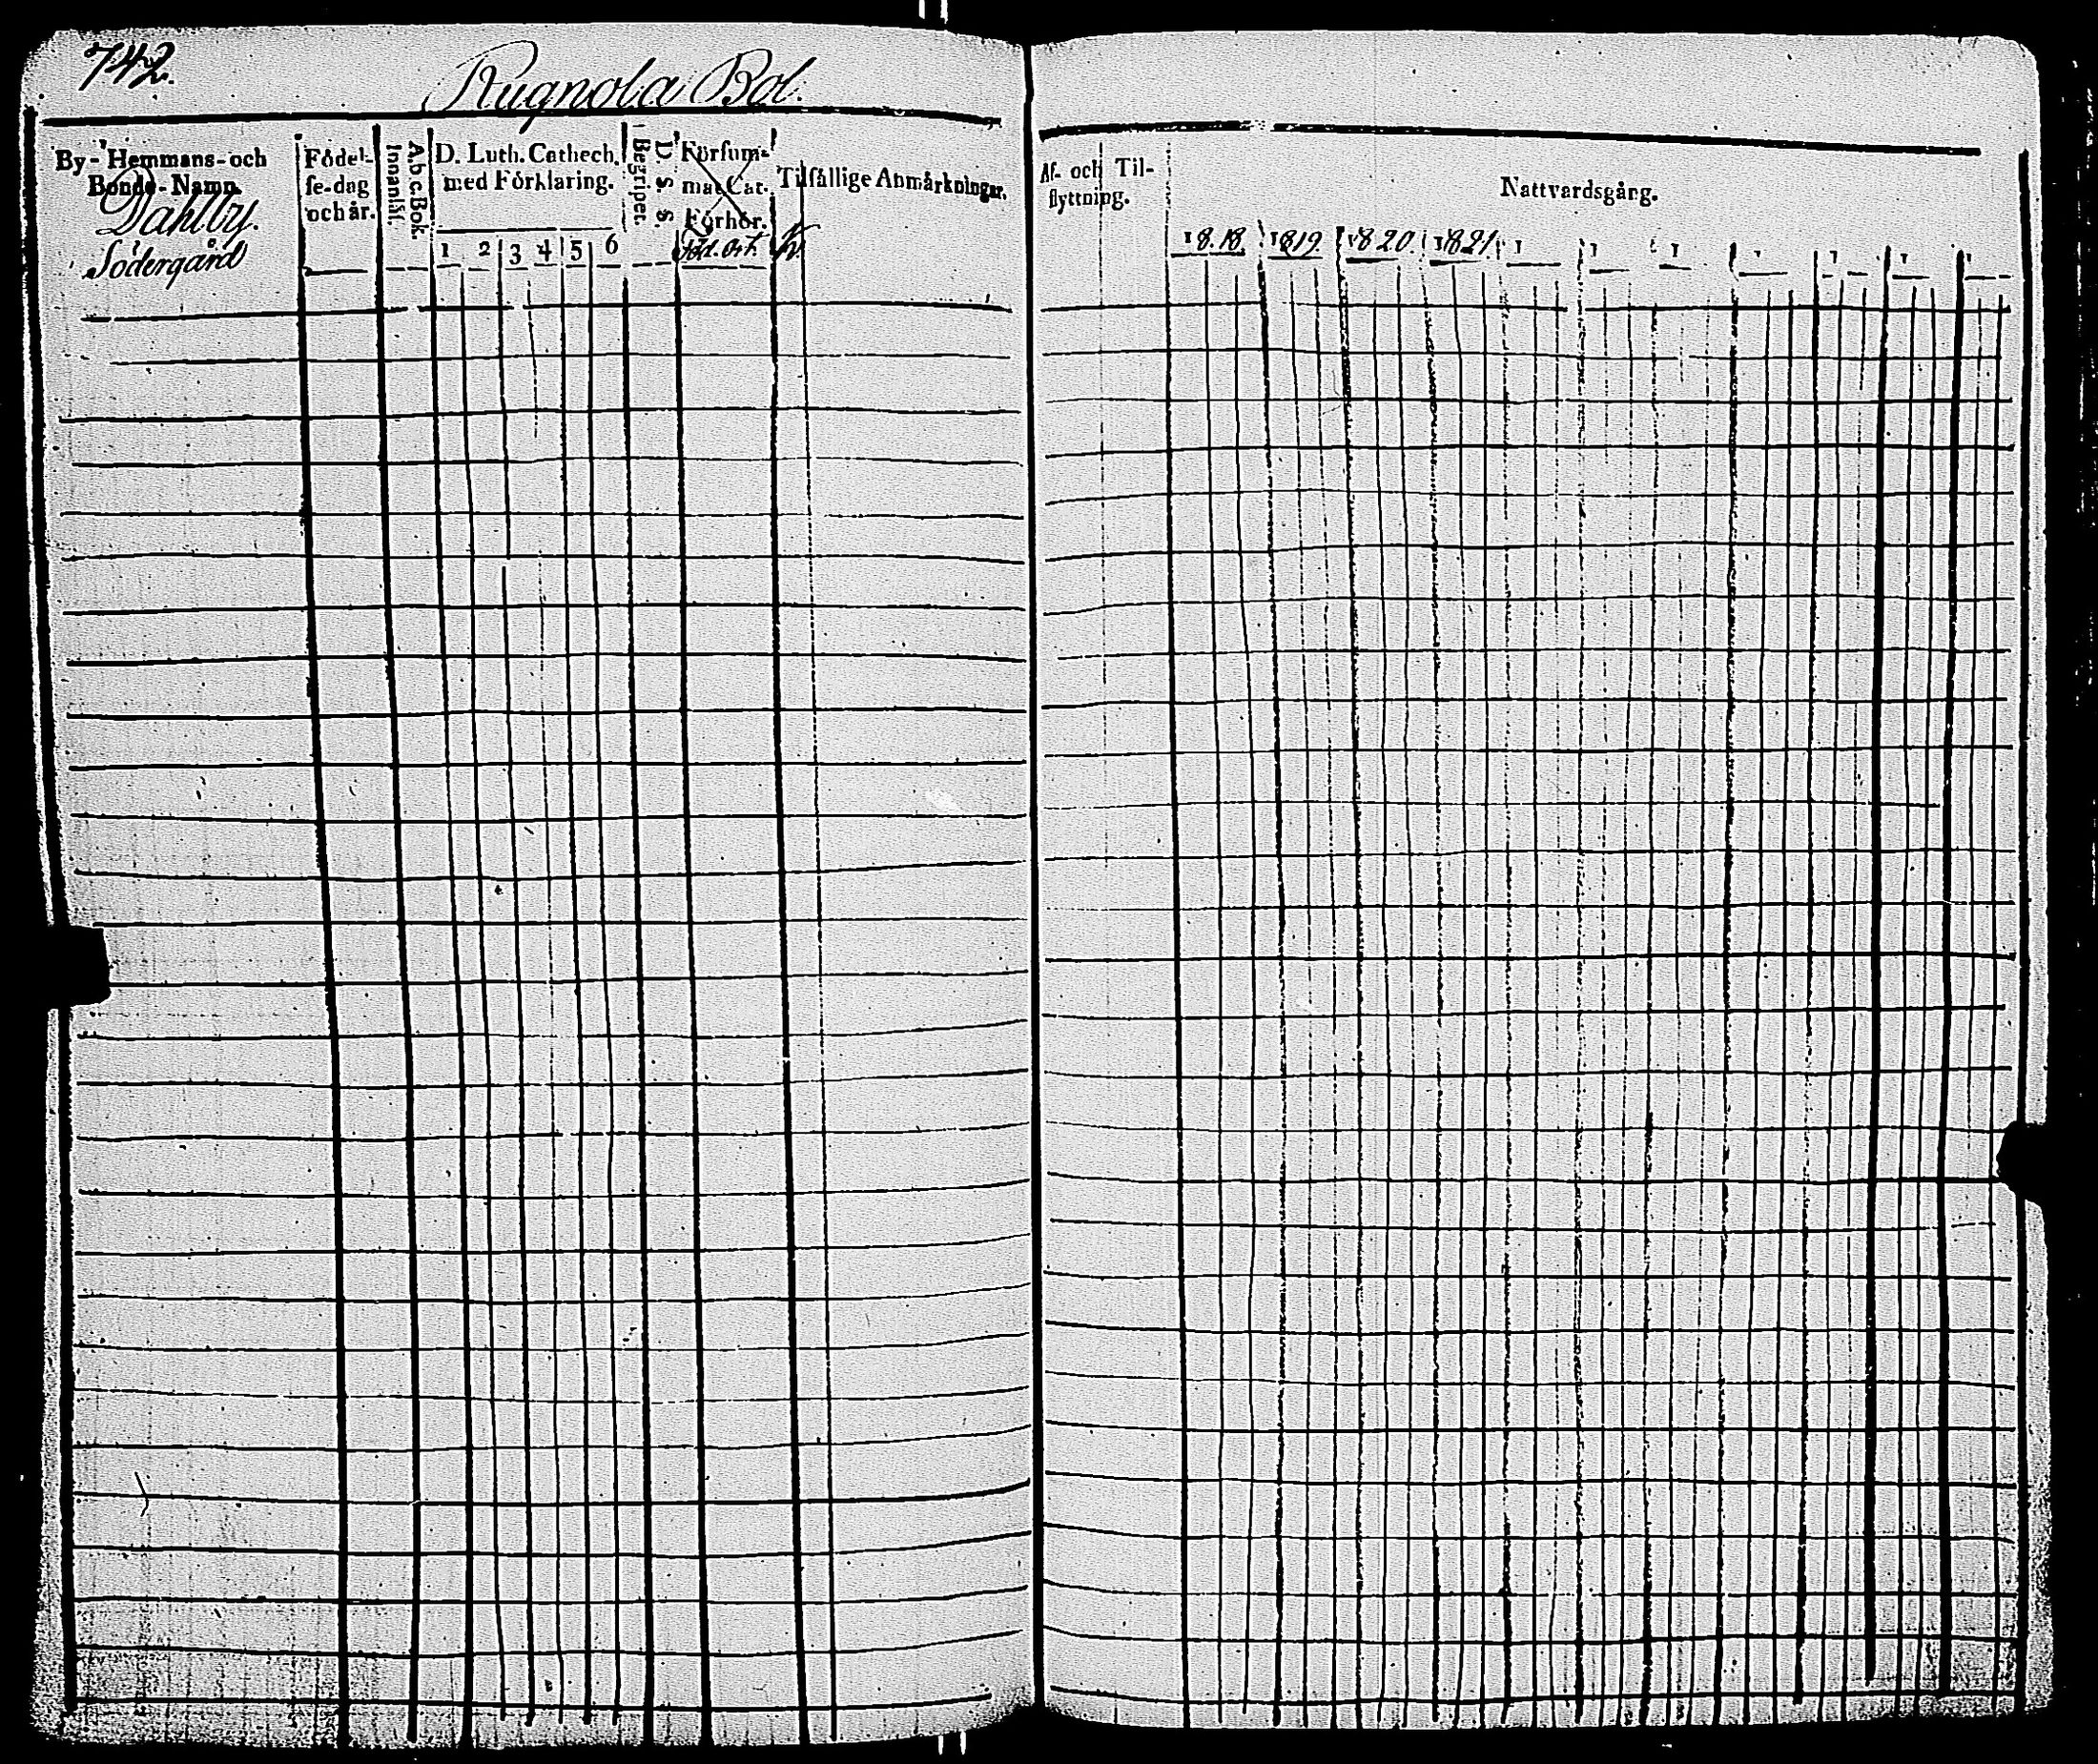 742.
Rugnola Bol.
By- Hemmans- och
Bonde-Namn.
Dahlby.
Södergård
Födel-
se-dag
och år.
A b c-Bok.
Innanläs.
D. Luth. Cathech.
med Förklaring.
1 2 3 4 5 6
Begripet.
D. S. S.
Försum-
mat Cat.
Förhör.
Tilfällige Anmärkningar.
Af- och Til-
flyttning.
Nattvardsgång.
1818. 1819 1820 1821. 1 1 1 1 1 1 1